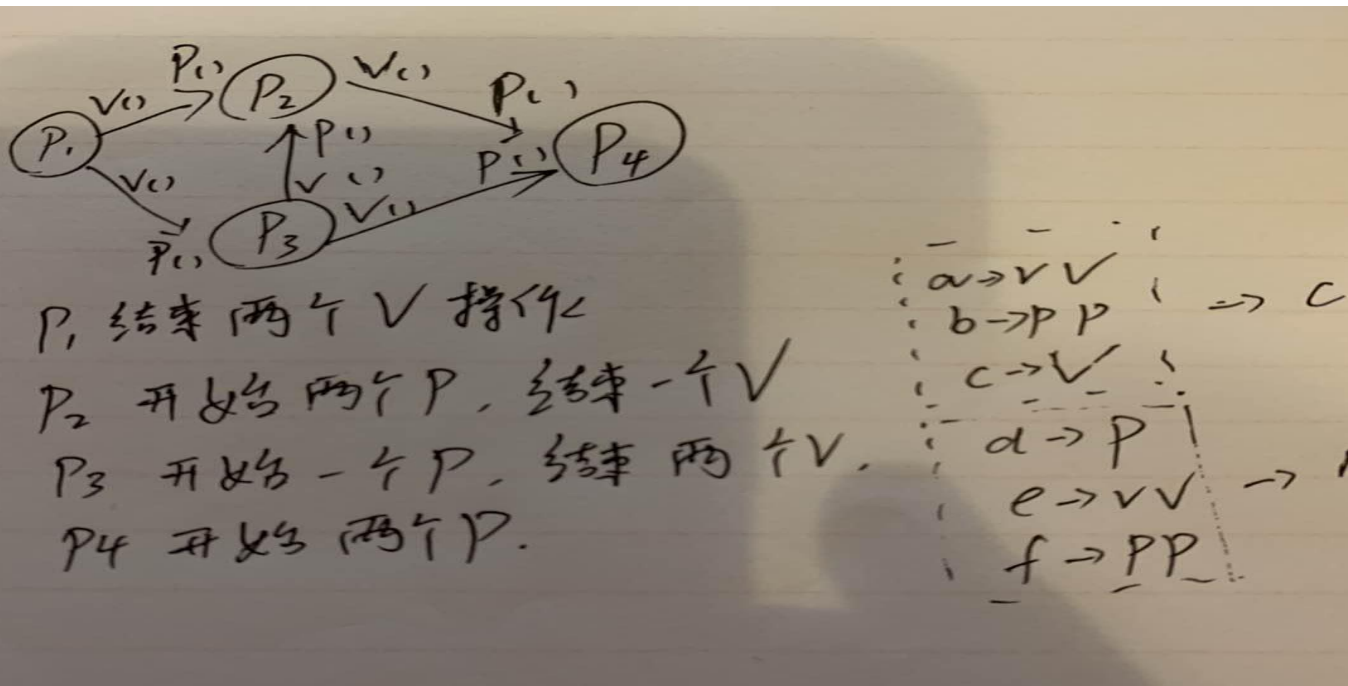 P() P2 V() P()
V()
P1 P() P() P4
V() V() V()
P() P3
P1 结束两个V操作
P2 开始两个P,结束一个V
P3 开始一个P,结束两个V.
P4 开始两个P.
a→VV
b→PP → C
c→V
d→P
e→VV →
f→PP